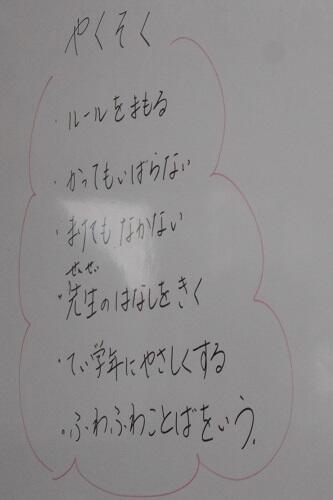 やくそく
・ルールをまもる
・かってもいばらない
・まけてもなかない
せんせい
・先生のはなしをきく
・てい学年にやさしくする
・ふわふわことばをいう。